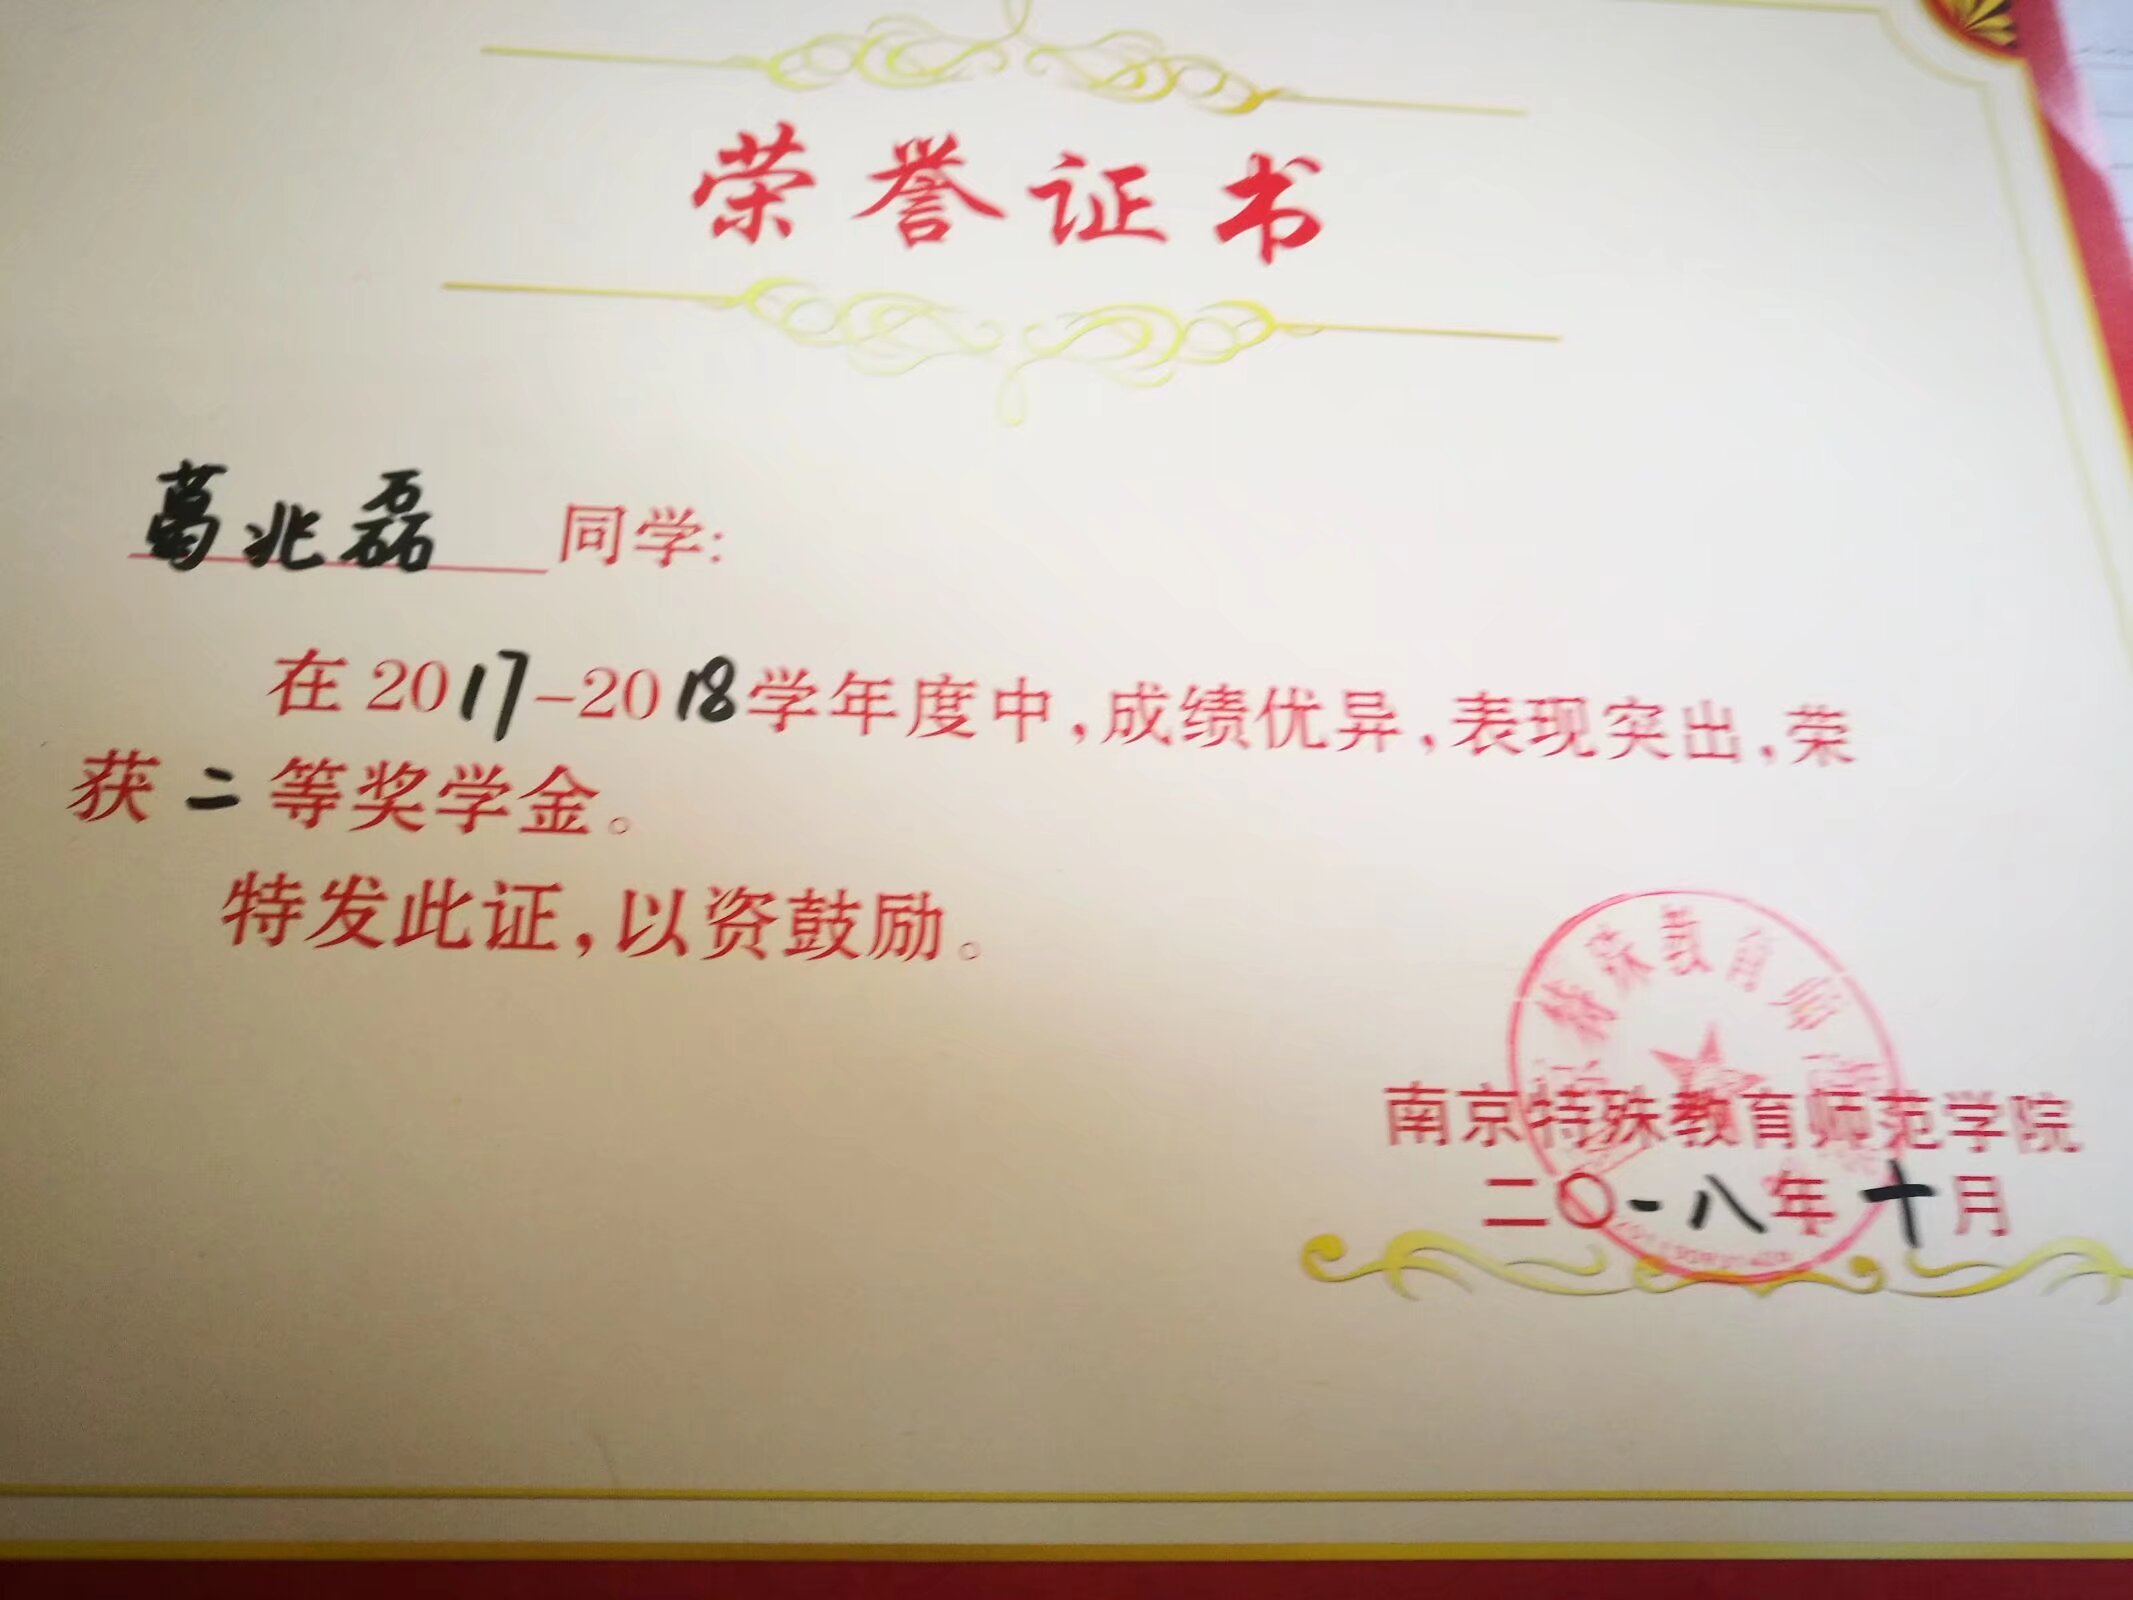 荣誉证书
葛兆磊 同学:
在2017-2018学年度中,成绩优异,表现突出,荣
获二等奖学金。
特发此证,以资鼓励。
特殊教育师
南京特殊教育师范学院
二〇一八年十月